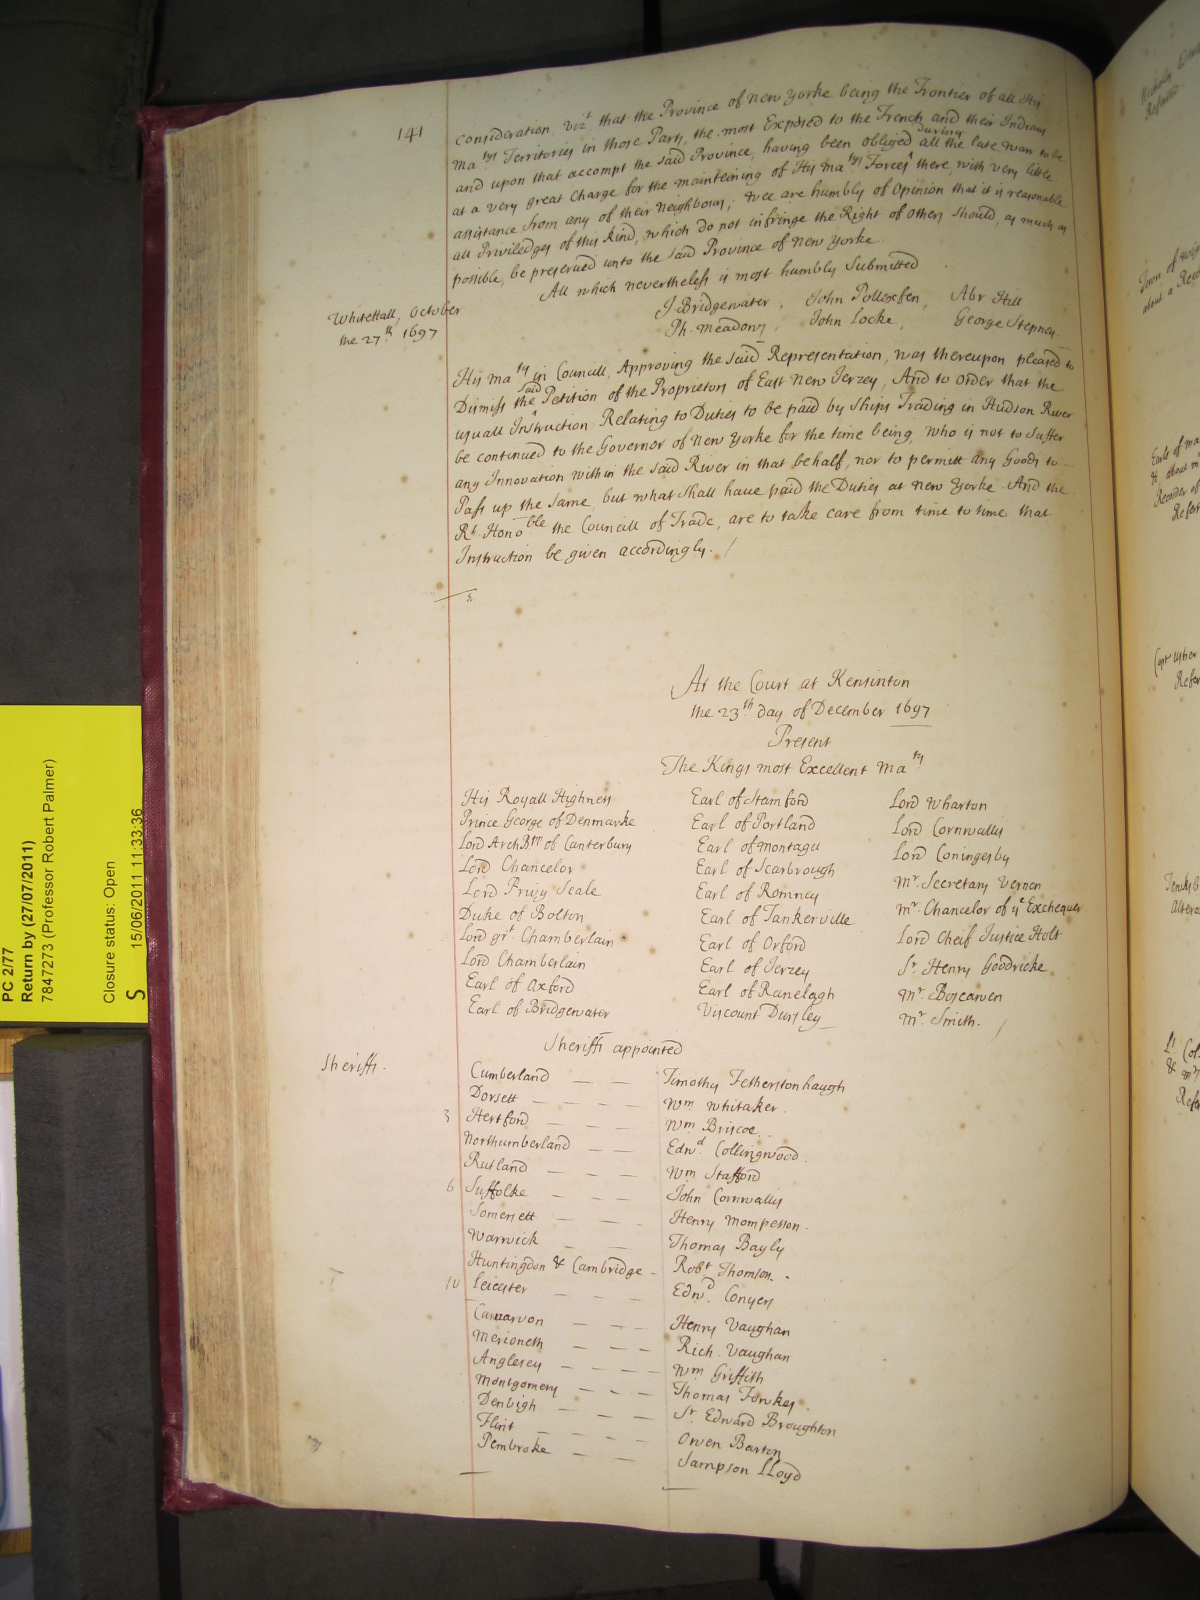 141
Consideration, vizt, that the Province of New Yorke being the Frontier of all His
Matys Territories in those Parts, the most Exposed to the French and their Indians
and upon that accompt the said Province, having been obliged during all the late warr to be
at a very great Charge for the mainteining of His Matys Forces there, with very little
assistance from any of their Neighbours; wee are humbly of Opinion that it is reasonable
all Priviledges of this kind, which do not infringe the Right of Others should, as much as
possible, be preserved unto the said Province of New Yorke.
All which nevertheless is most humbly Submitted
Whitehall, October
the 27th 1697
J. Bridgewater, John Pollexfen, Abr Hill
Ph. Meadows, John Locke, George Stepney.
His Maty in Councill, Approving the said Representation, was thereupon pleased to
Dismiss the said Petition of the Proprietors of East New Jerzey, And to Order that the
usuall Instruction Relating to Duties to be paid by Ships Trading in Hudson River
be continued to the Governor of New Yorke for the time being, who is not to Suffer
any Innovation within the said River in that behalf, nor to permitt any Goods to
Pass up the same but what shall have paid the Duties at New Yorke. And the
Rt Honoble the Councill of Trade, are to take care from time to time that
Instruction be given accordingly. /
At the Court at Kensinton
the 23th day of December 1697
Present
The Kings most Excellent Maty
His Royall Highness Earl of Stamford Lord Wharton
Prince George of Denmarke Earl of Portland Lord Cornwallis
Lord ArchBpp of Canterbury Earl of Montagu Lord Coningesby
Lord Chancelor Earl of Scarbrough Mr. Secretary Vernon
Lord Privy Seale Earl of Romney Mr. Chancelor of ye Exchequer
Duke of Bolton Earl of Tankerville Lord Cheif Justice Holt
Lord grt Chamberlain Earl of Orford Sr Henry Goodricke
Lord Chamberlain Earl of Jerzey Mr. Boscawen
Earl of Oxford Earl of Ranelagh Mr. Smith. /
Earl of Bridgewater Viscount Dursley
Sheriffs.
Sheriffs appointed
Cumberland — — Timothy Fetherstonhaugh
Dorsett — — — — Wm Whitaker.
3 Hertford — — — Wm Briscoe.
Northumberland — — Edwd Collingwood.
Rutland — — — Wm Stafford
6 Suffolke — — — John Cornwallis
Somersett — — — Henry Mompesson.
Warwick — — Thomas Bayly
Huntingdon & Cambridge - Robt Thomson.
10 Leicester — — — Edwd. Conyers
Carnarvon — — — Henry Vaughan
Merioneth — — — Rich. Vaughan
Anglesey — — — — Wm Griffith
Montgomery — — — Thomas Fowkes
Denbigh — — — Sr Edward Broughton
Flint — — — — Owen Barton
Pembroke — — Sampson Lloyd
PC 2/77
Return by (27/07/2011)
7847273 (Professor Robert Palmer)
Closure status: Open
S 15/06/2011 11:33:36